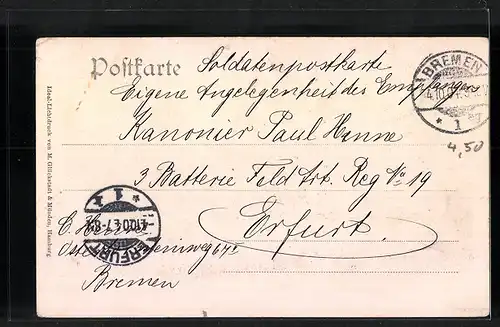 Postkarte Soldatenpostkarte
Eigene Angelegenheit des Empfängers
Kanonier Paul Henne
3 Batterie Feld Art. Reg No 19
Erfurt.
Bremen
BREMEN
* 1
4,50
ERFURT
1
Ideal-Lichtdruck von M. Glückstadt & Münden, Hamburg